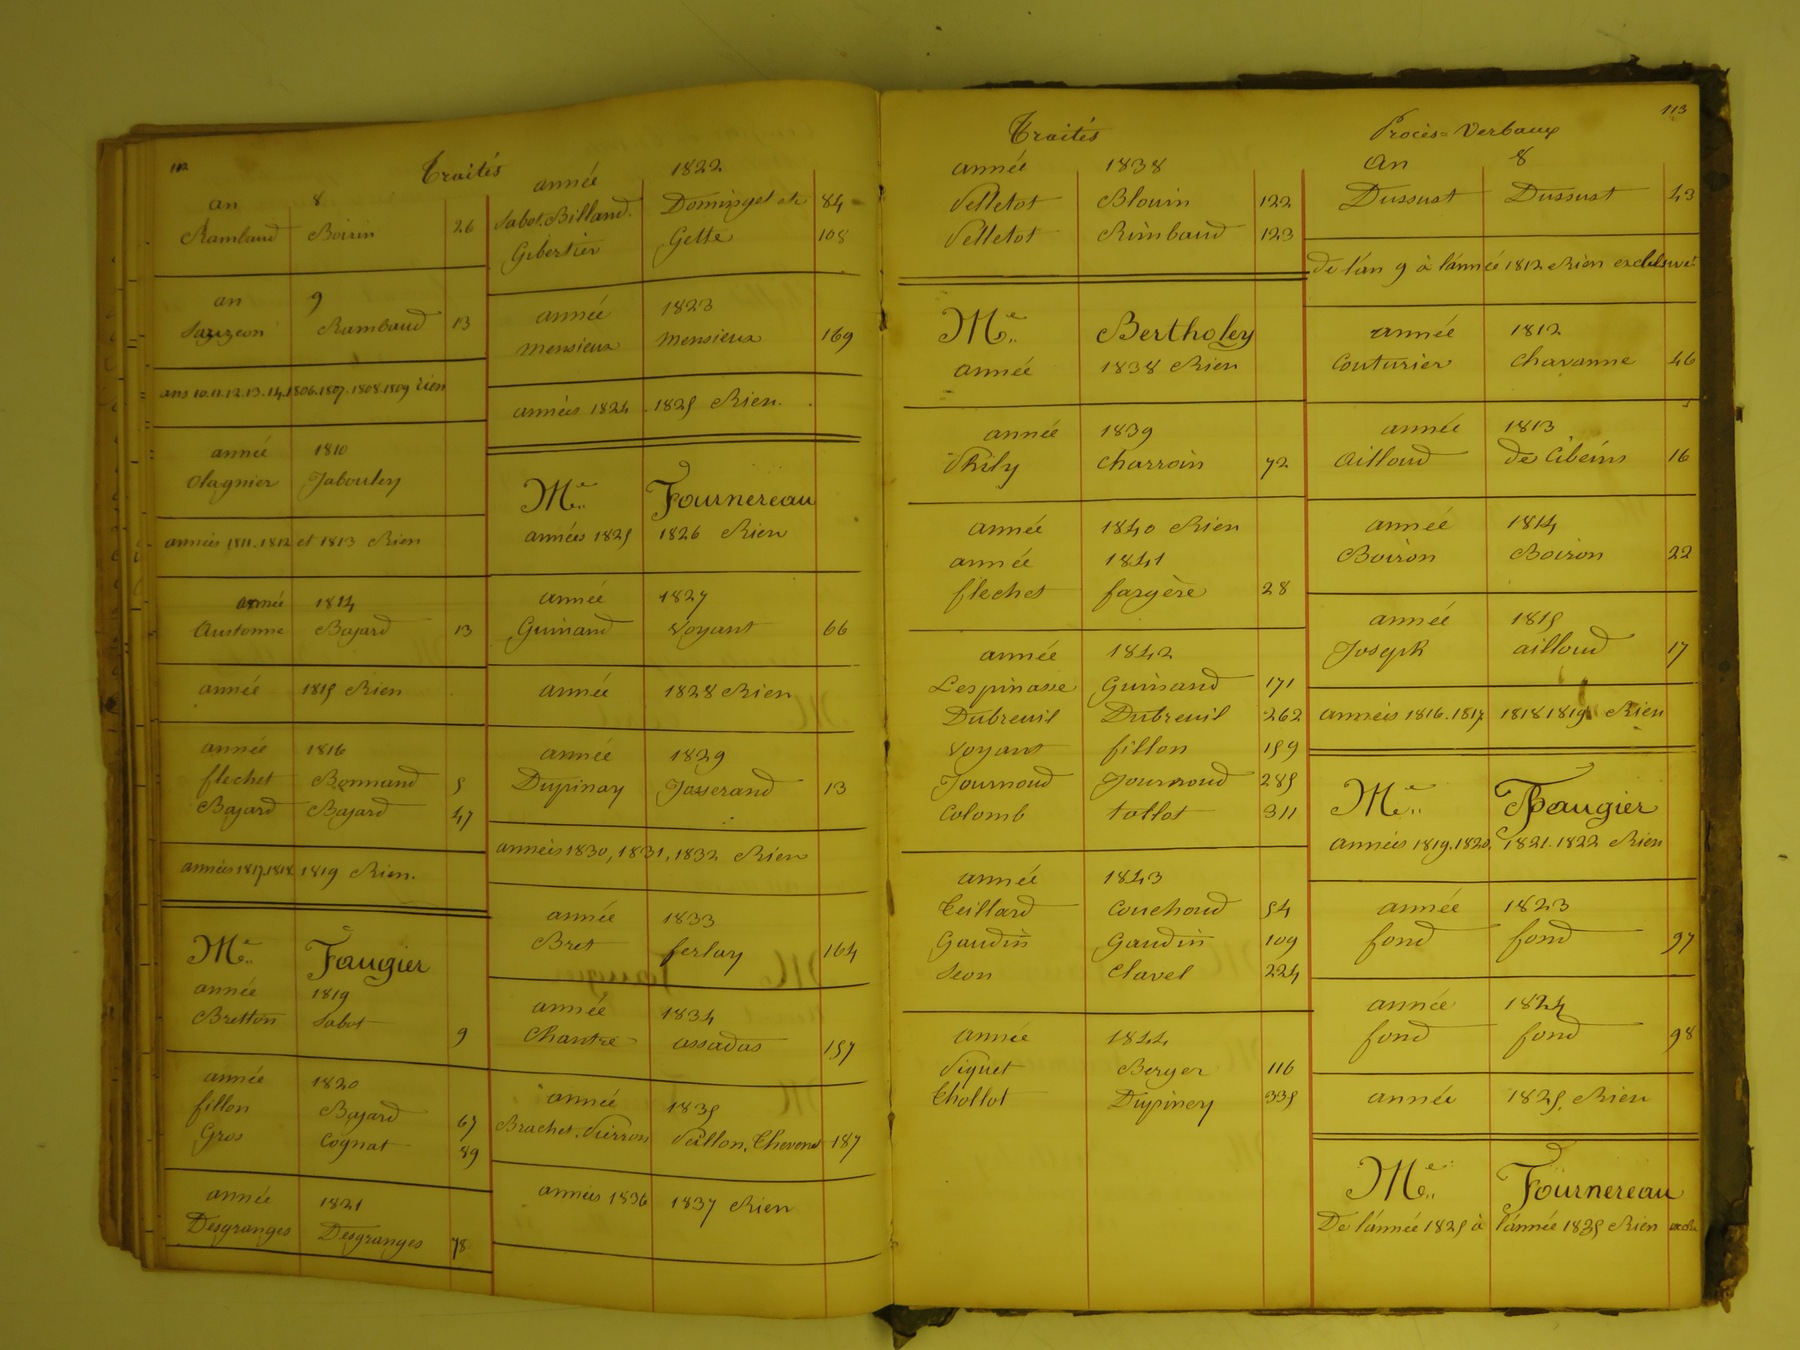 112
Traités
an 8
Rambaud Boirin 26
an 9
Sauzeon Rambaud 13
ans 10.11.12.13.14.1806.1807.1808.1809 rien
année 1810
Olagnier Jabouley
années 1811.1812 et 1813 Rien
année 1814
Austonne Bajard 13
année 1815 Rien
année 1816
flechet Bonnand 5
Bajard Bajard 47
années 1817.1818 1819 Rien.
Me. Faugier
année 1819
Bretton Sabot 9
année 1820
fillon Bajard 67
Gros Cognat 89
année 1821
Desgranges Desgranges 78
année 1822
Sabot. Billand. Dominget et 84
Gibertier Gette 108
année 1823
mensieux mensieux 169
années 1824. 1825 Rien.
Me. Fournereau
années 1825 1826 Rien
année 1827
Guinand Voyant 66
année 1828 Rien
année 1829
Dupinay Josserand 13
années 1830, 1831, 1832 Rien
année 1833
Bret ferlay 164
année 1834
Chantre assadas 157
année 1835
Brachet. Pierron Peillon. Thevenet 187
années 1836 1837 Rien
113
Traités
année 1838
Pelletot Blouin 122
Pelletot Rimbaud 123
Me. Bertholey
année 1838 Rien
année 1839
Phily Charroin 72
année 1840 Rien
année 1841
flechet fargère 28
année 1842
Lespinasse Guinand 171
Dubreuil Dubreuil 262
Voyant fillon 159
Journoud Journoud 285
Colomb tollot 311
année 1843
Teillard Couchoud 54
Gaudin Gaudin 109
Seon Clavel 224
année 1844
Piquet Berger 116
Thollot Dupiney 335
Procès=Verbaux
An 8
Dussust Dussust 43
de l'an 9 à l'année 1812 Rien exclusivet
année 1812
Couturier Chavanne 46
année 1813
Ailloud de Cibeins 16
année 1814
Boiron Boiron 22
année 1815
Joseph ailloud 17
années 1816.1817 1818 1819 Rien
Me. Faugier
années 1819.1820. 1821.1822 Rien
année 1823
fond fond 97
année 1824
fond fond 98
année 1825. Rien
Me. Fournereau
De l'année 1825 à l'année 1835 Rien